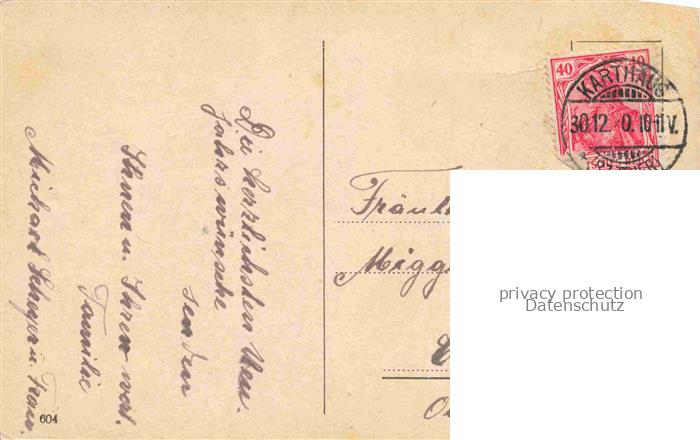 Die herzlichsten Neu.
jahrswünsche
senden
Ihnen u. Ihrer wert.
Familie
Michael u. Frau.
604
40
40
KARTHAUS
30.12. 0.10-11V.
Fräul
Migg
privacy protection
Datenschutz